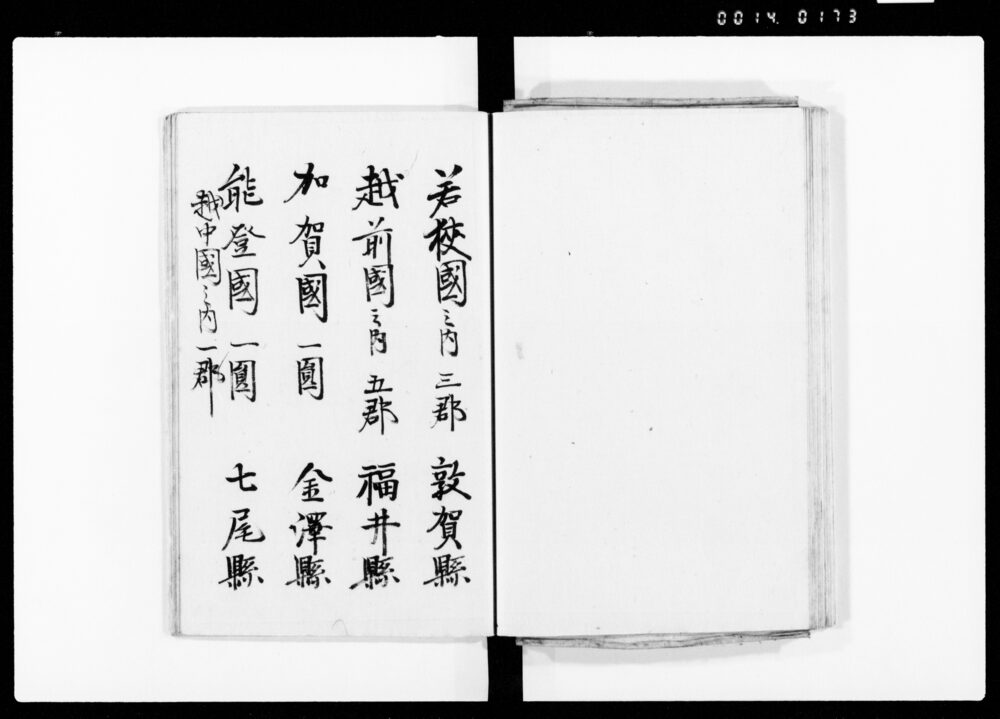 0014.0173
若狹國之内三郡 敦賀縣
越前國之内五郡 福井縣
加賀國一圓 金澤縣
能登國一圓 七尾縣
越中國之内一郡